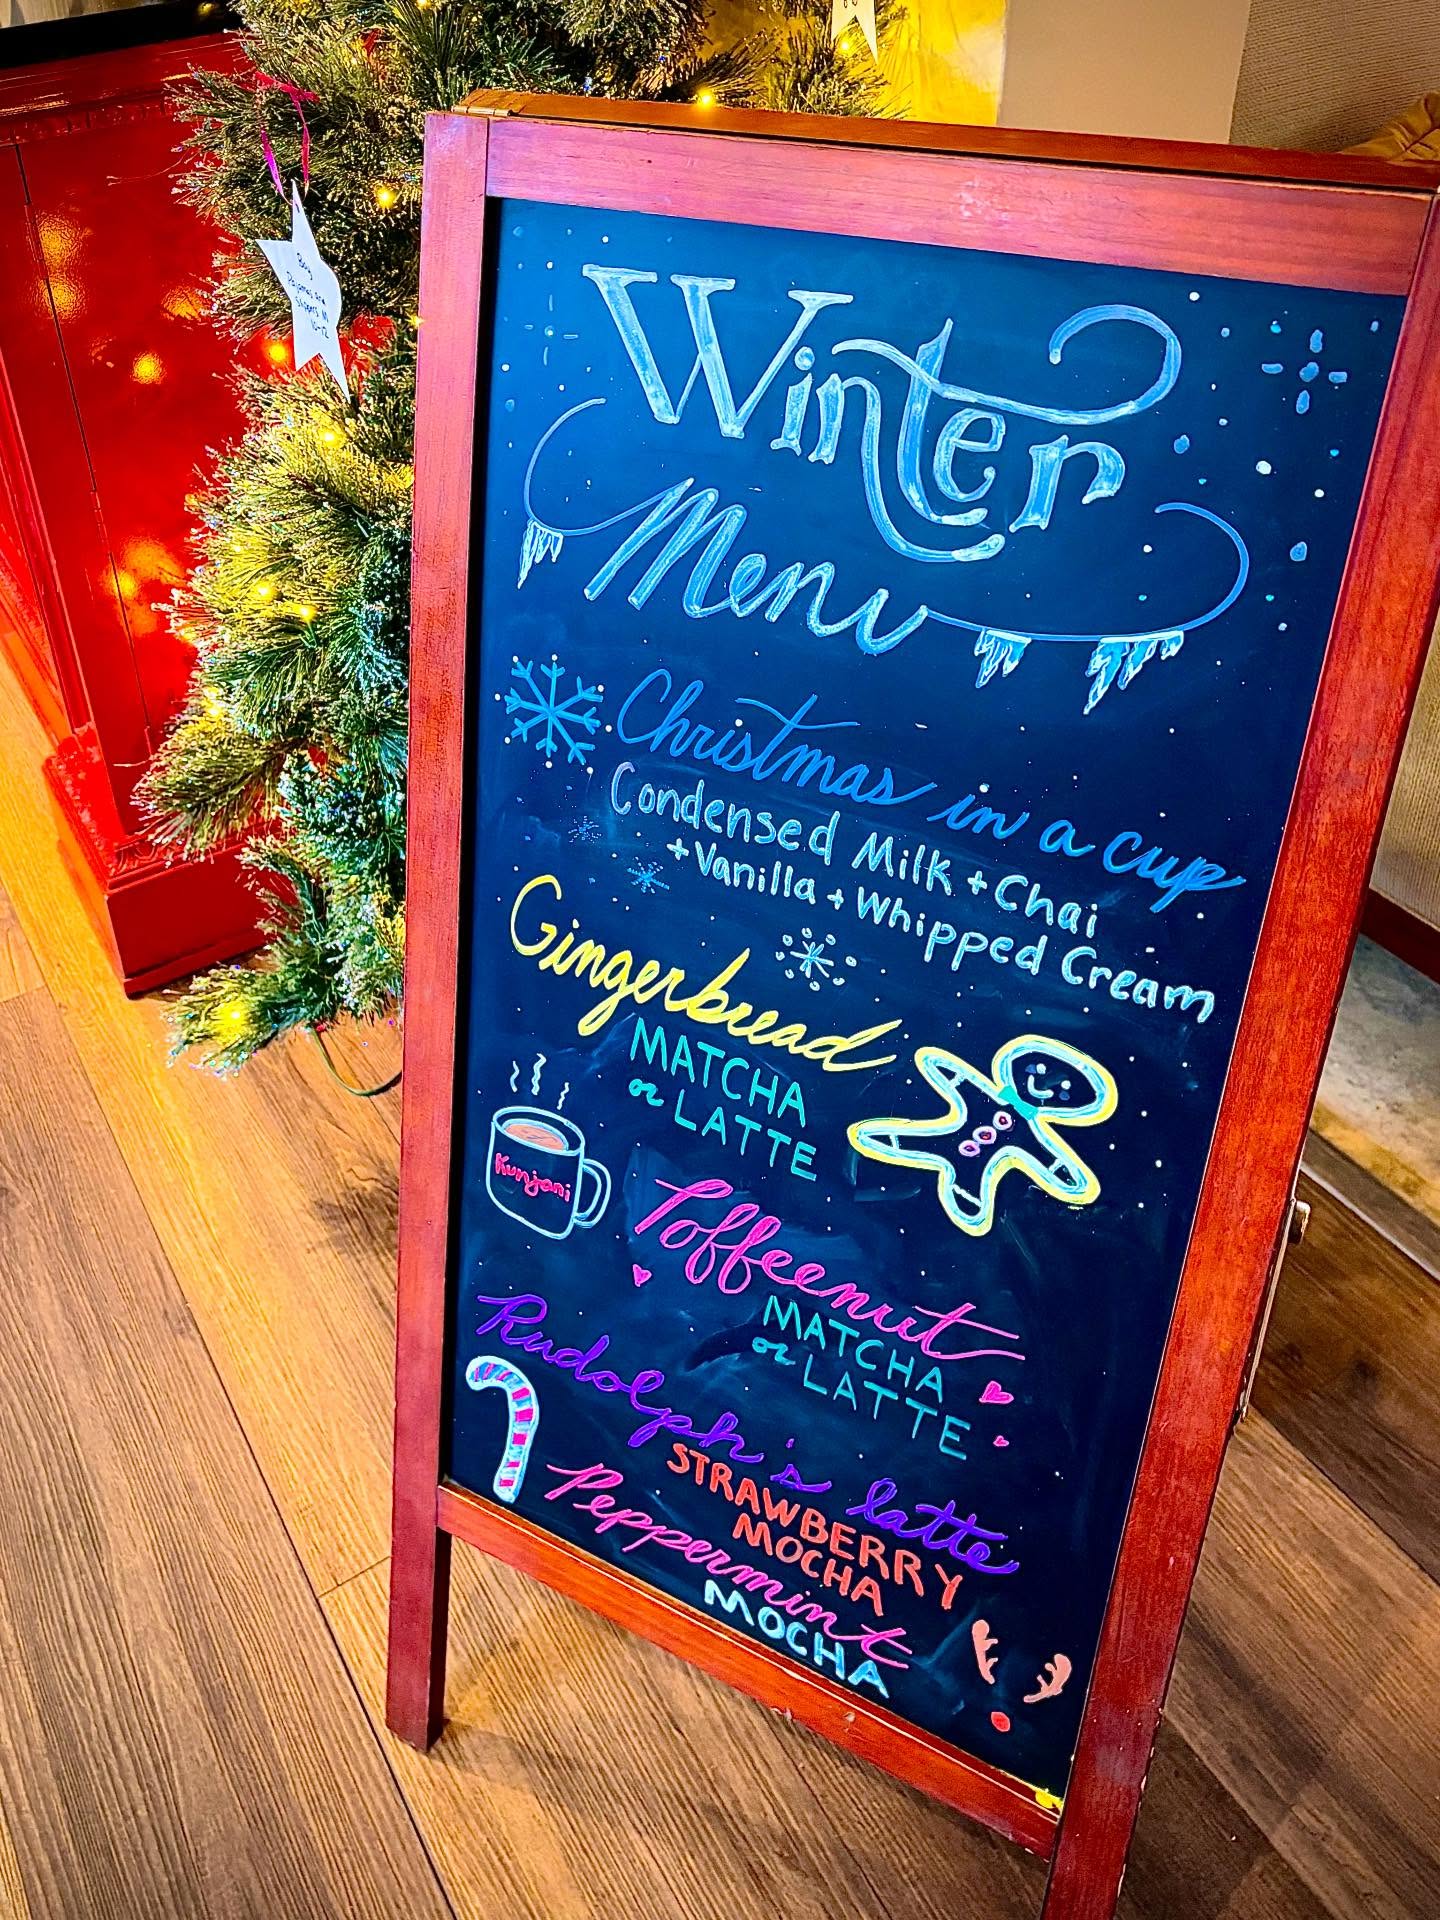 Boy
Pajamas and
Slippers M
10-12
Winter
Menu
Christmas in a cup
Condensed Milk + Chai
+ Vanilla + Whipped Cream
Gingerbread
MATCHA
or LATTE
Kunjani
Toffeenut
MATCHA
or LATTE
Rudolph's latte
STRAWBERRY
MOCHA
Peppermint
MOCHA